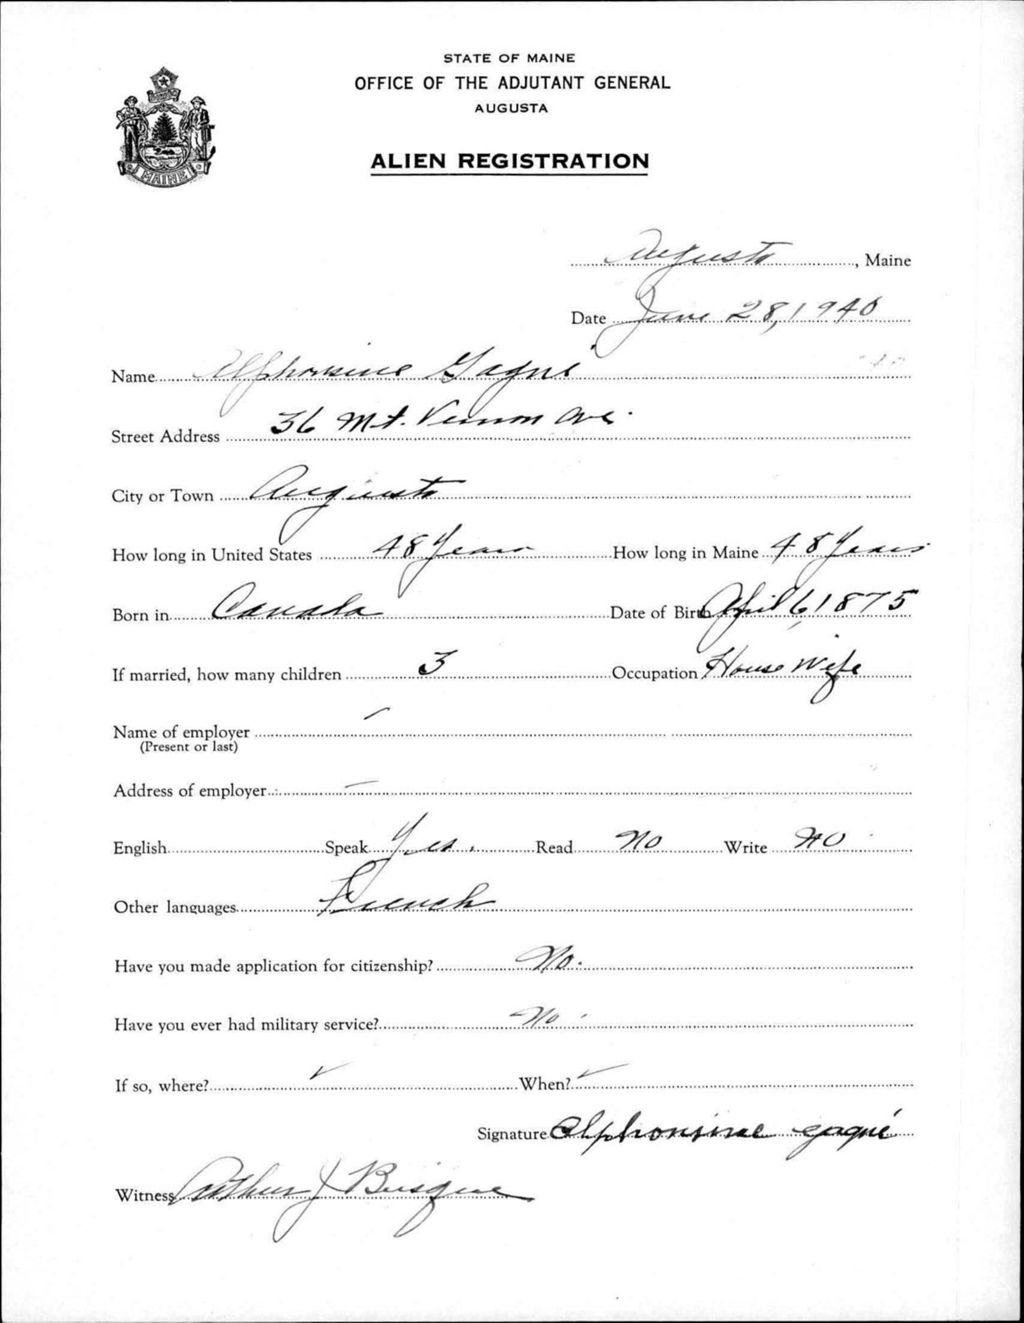 STATE OF MAINE
OFFICE OF THE ADJUTANT GENERAL
AUGUSTA
ALIEN REGISTRATION
MAINE
Augusta, Maine
Date June 28, 1940
Name Alphonsine Gagné
Street Address 36 Mt. Vernon Ave.
City or Town Augusta
How long in United States 48 Years How long in Maine 48 Years
Born in Canada Date of Birth April 6, 1875
If married, how many children 3 Occupation House Wife
Name of employer -
(Present or last)
Address of employer -
English Speak Yes. Read No Write No
Other languages French
Have you made application for citizenship? No.
Have you ever had military service? No
If so, where? When?
Signature Alphonsinae gagné
Witness Arthur J Bisque